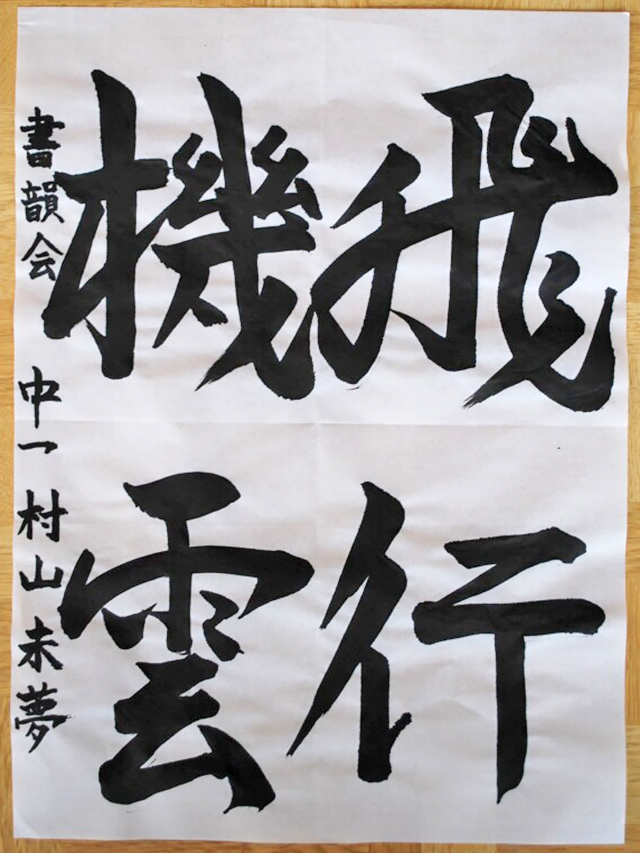 飛行
機雲
書韻会 中一 村山未夢